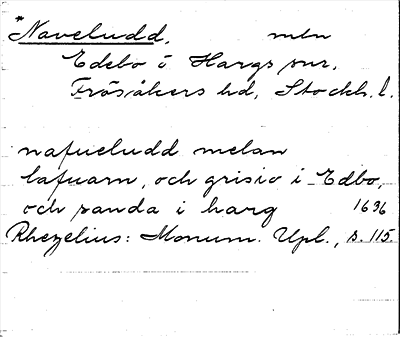 *Naveludd, mln
Edebo o Hargs snr,
Frösåkers hd, Stockh. l.
nafueludd melan
lafuarn, och grisio i Edbo,
och sanda i harg 1636
Rhezelius: Monum. Upl., s. 115.